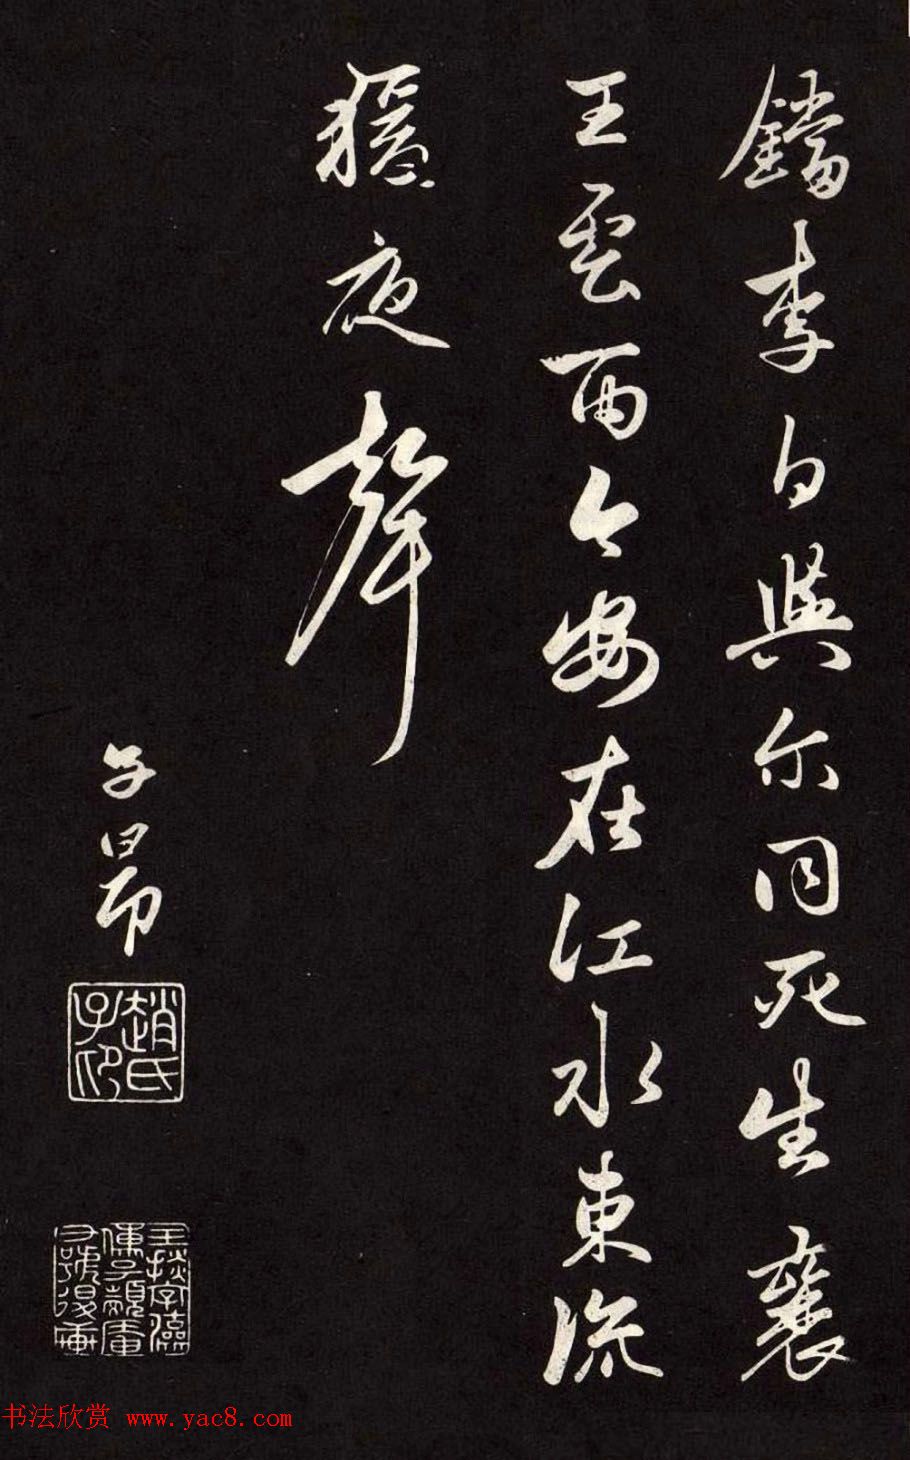 鐺李白與尔同死生襄
王雲雨今安在江水東流
猨夜聲
子昂
趙氏子印
书法欣赏 www.yac8.com